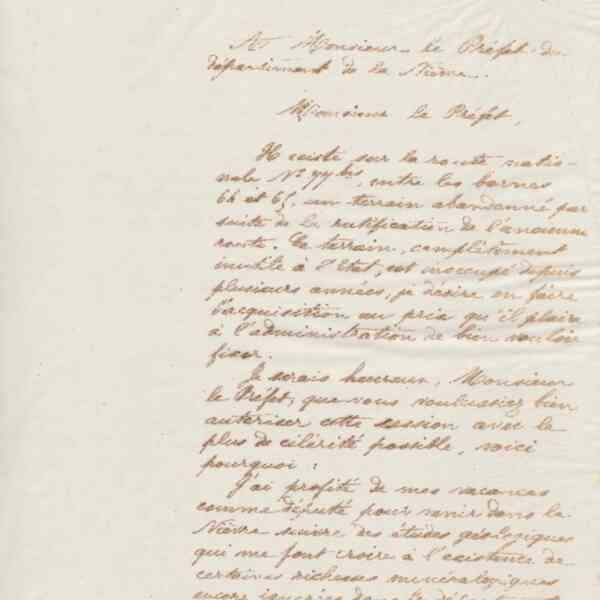 A Monsieur le Préfet du
département de la Nièvre.
Monsieur le Préfet,
Il existe sur la route natio-
nale N° 77 bis, entre les bornes
64 et 65, un terrain abandonné par
suite de la rectification de l'ancienne
route. Ce terrain, complètement
inutile à l'Etat, est inoccupé depuis
plusieurs années, je désire en faire
l'acquisition au prix qu'il plaira
à l'administration de bien vouloir
fixer.
Je serais heureux, Monsieur
le Préfet, que vous voulussiez bien
autoriser cette cession avec le
plus de célérité possible, voici
pourquoi :
J'ai profité de mes vacances
comme député pour venir dans la
Nièvre suivre des études géologiques
qui me font croire à l'existence de
certaines richesses minéralogiques
encore ignorées dans le département